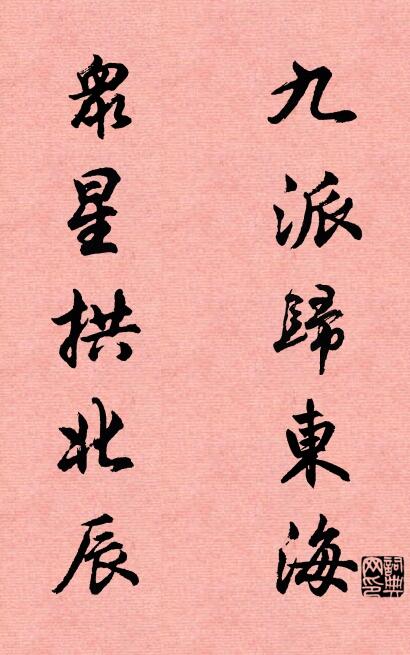 九派歸東海
眾星拱北辰
詞典网印